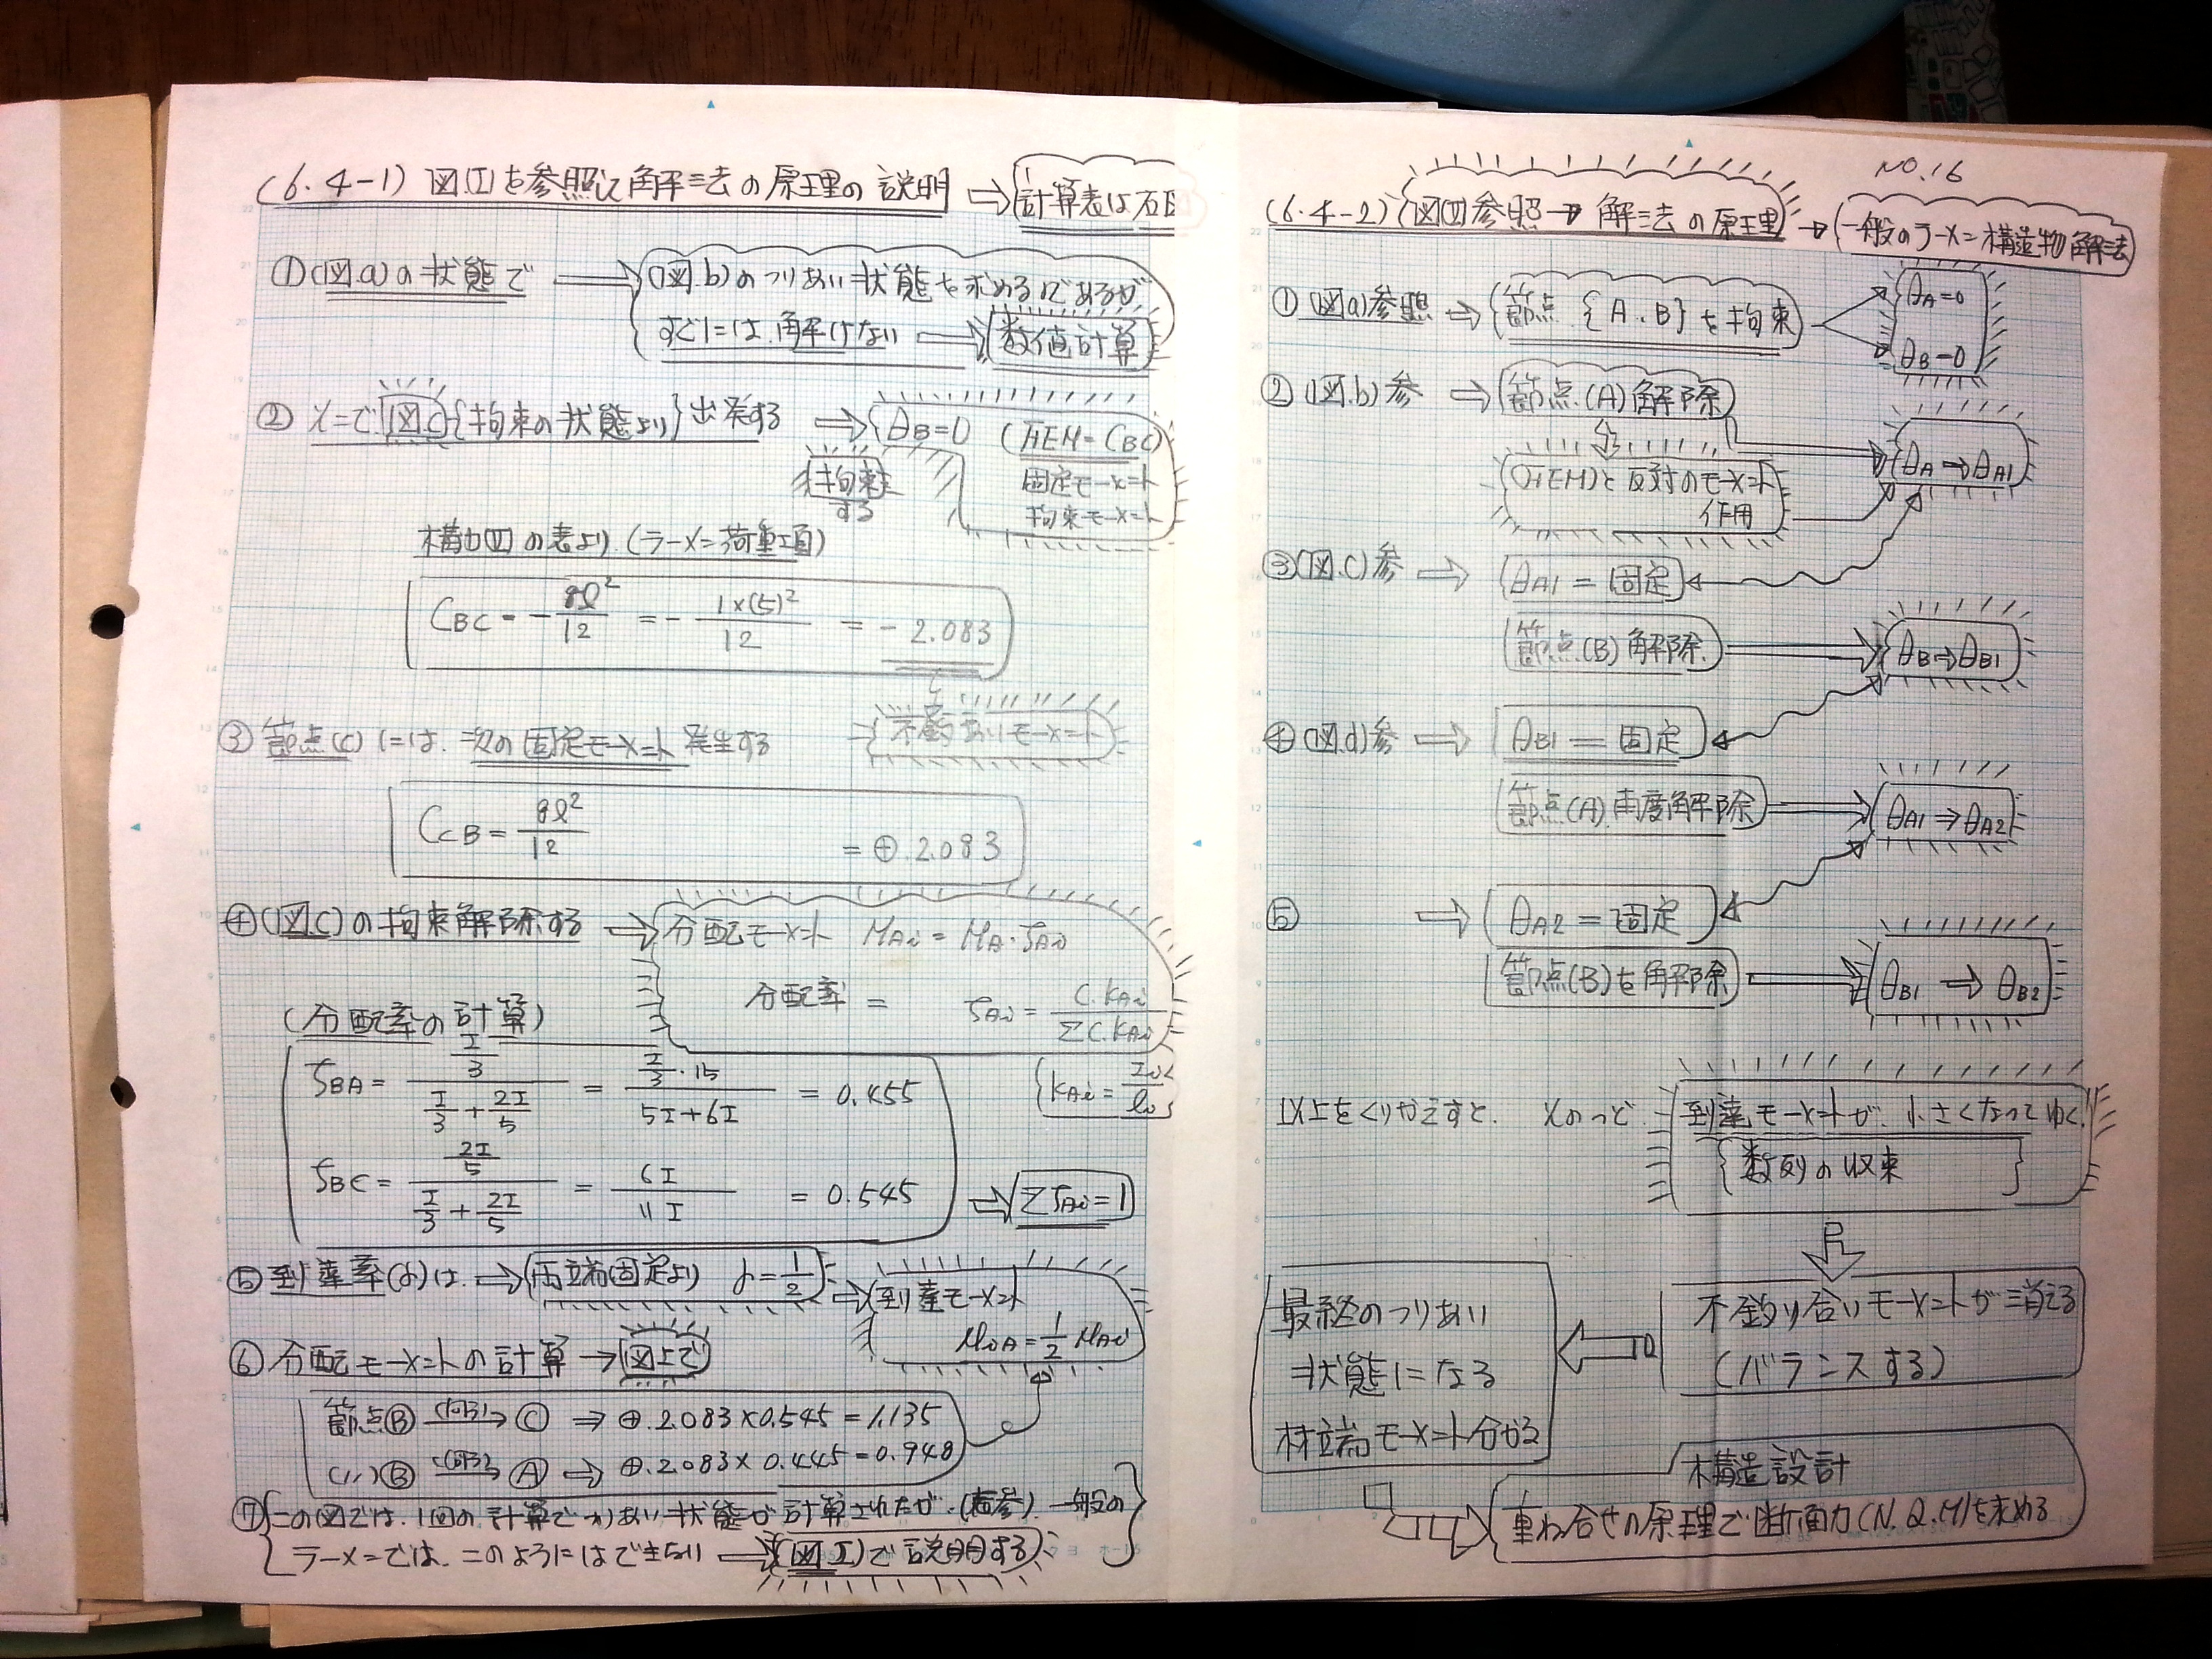 (6.4-1) 図(I)を参照して解法の原理の説明 ⇒ 計算表は右図
① (図.a)の状態で ⇒ (図.b)のつりあい状態を求めるのであるが
すぐには解けない ⇒ 数値計算
② そこで(図.c){拘束の状態より}出発する ⇒ θB=0 (FEM=CBC)
拘束する
固定モーメント
拘束モーメント
構力(II)の表より.(ラーメン荷重項)
CBC = -gl²/12 = -1×(5)²/12 = -2.083
不釣あいモーメント
③ 節点(C)には.次の固定モーメント発生する
CCB = gl²/12 = ⊕.2.083
④ (図.C)の拘束解除する ⇒ 分配モーメント MAi = MA・ζAi
分配率 = ζAi = C.KAi/ΣC.KAi
(分配率の計算)
KAi = Ii/li
ζBA = (I/3)/(I/3+2I/5) = (I/3・15)/(5I+6I) = 0.455
ζBC = (2I/5)/(I/3+2I/5) = 6I/11I = 0.545 ⇒ ΣζAi=1
⑤ 到達率(α)は. ⇒ 両端固定より α=1/2 ⇒ 到達モーメント
MiA=1/2 MAi
⑥ 分配モーメントの計算 → 図上で
節点Ⓑ → Ⓒ ⇒ ⊕.2.083×0.545=1.135
(〃)Ⓑ → Ⓐ ⇒ ⊕.2.083×0.445=0.948
⑦ この図では.1回の計算でつりあい状態が計算されたが.(右参).一般の
ラーメンでは.このようにはできない ⇒ (図I)で説明する
NO.16
(6.4-2) (図II)参照→解法の原理 → 一般のラーメン構造物解法
① (図a)参照 ⇒ 節点{A.B}を拘束
θA=0
θB=0
② (図.b)参 ⇒ 節点.(A)解除
(FEM)と反対のモーメント
作用
θA→θA1
③ (図.C)参 ⇒ θA1=固定
節点.(B)解除. ⇒ θB→θB1
④ (図.d)参 ⇒ θB1=固定
節点(A).再度解除 ⇒ θA1⇒θA2
⑤ ⇒ θA2=固定
節点(B)を解除 ⇒ θB1→θB2
以上をくりかえすと. そのつど 到達モーメントが.小さくなってゆく.
{数列の収束}
不釣り合いモーメントが消える
(バランスする)
最終のつりあい
状態になる
材端モーメント分かる
構造設計
重ね合せの原理で断面力(N.Q.M)を求める